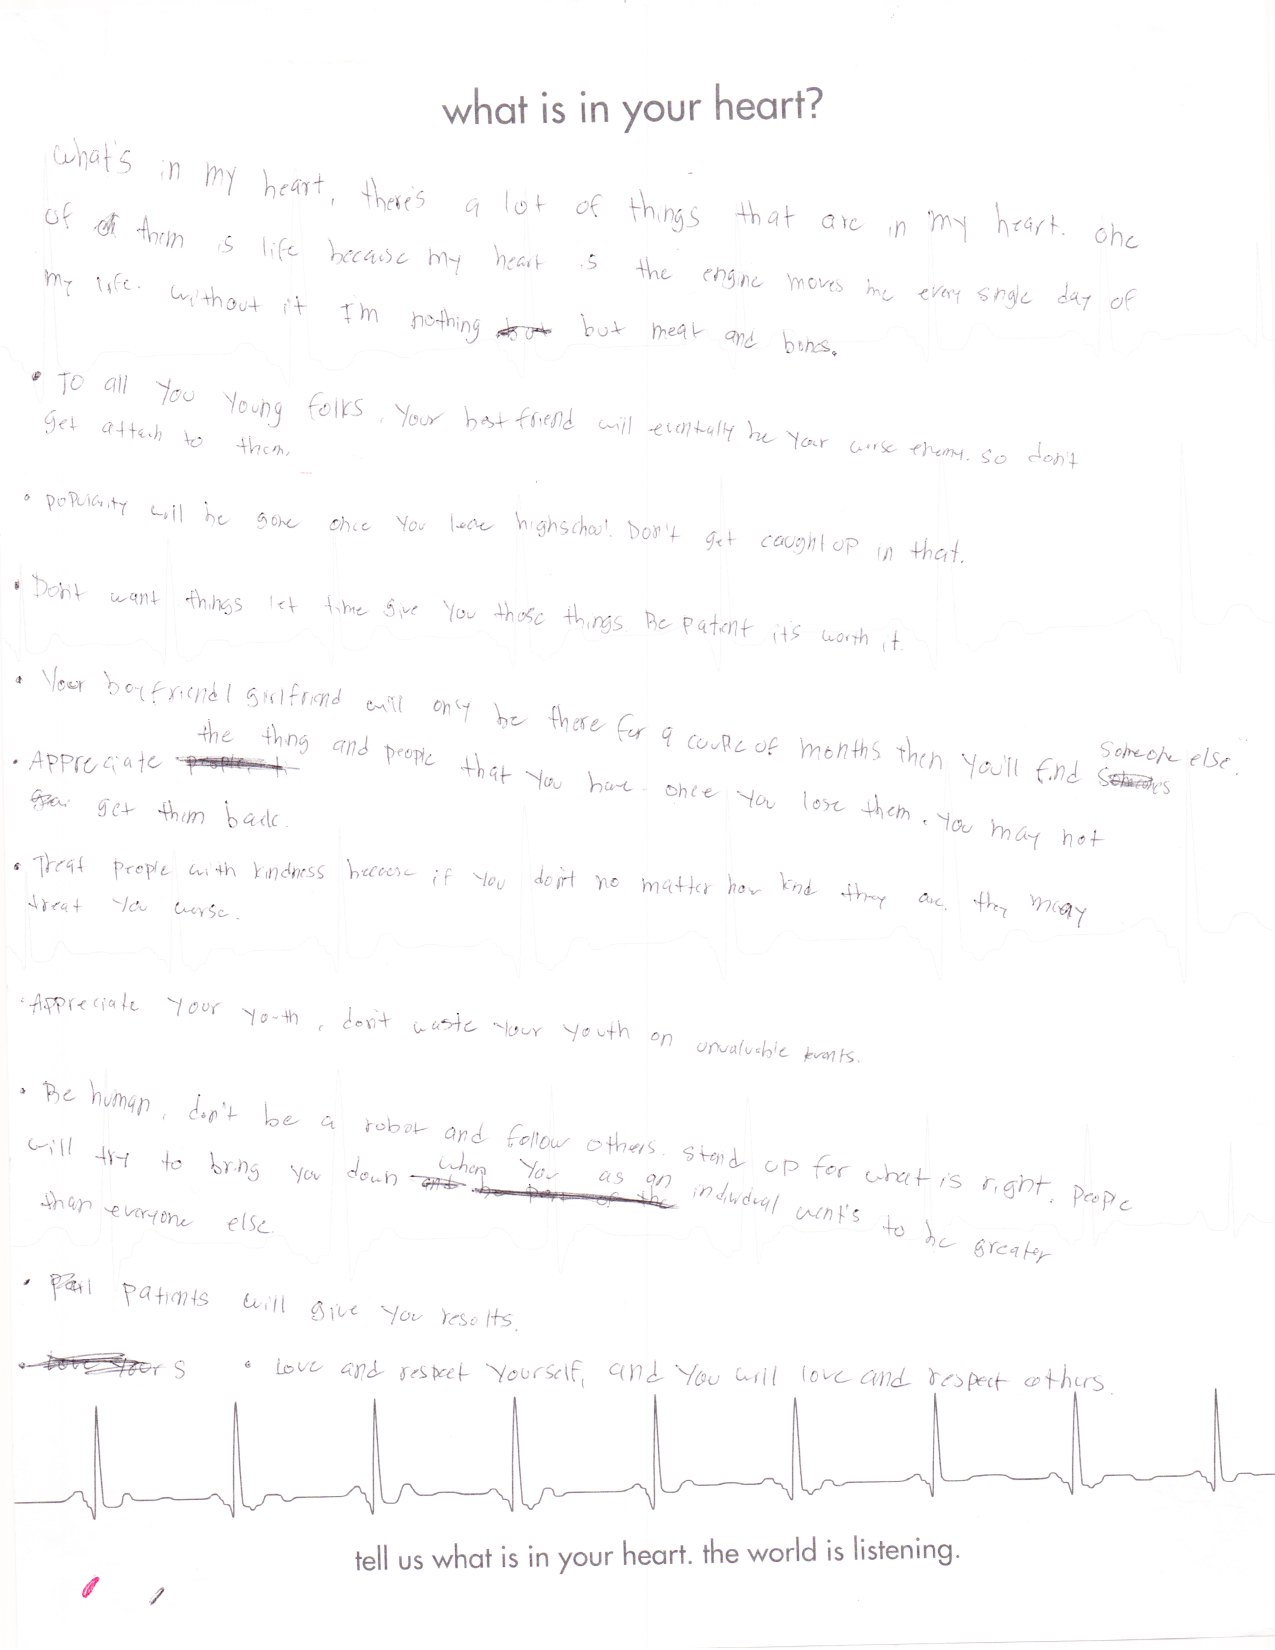 what is in your heart?
what's in my heart, there's a lot of things that are in my heart. one
of them is life because my heart is the engine moves me every single day of
my life. without it I'm nothing but meat and bones.
• To all you young folks, your best friend will eventually be your worse enemy. so don't
get attach to them.
• popularity will be gone once you leave highschool. Don't get caught up in that.
• Don't want things let time give you those things Be patient it's worth it.
• Your boyfriend/girlfriend will only be there for a couple of months then you'll find someone else.
• Appreciate the thing and people that you have. once you lose them, you may not
get them back.
• Treat people with kindness because if you don't no matter how kind they are, they may
treat you worse.
• Appreciate your youth, don't waste your youth on unvaluable events.
• Be human, don't be a robot and follow others. stand up for what is right. people
will try to bring you down when you as an individual went's to be greater
than everyone else.
• patients will give you results.
• Love and respect yourself, and you will love and respect others.
tell us what is in your heart. the world is listening.